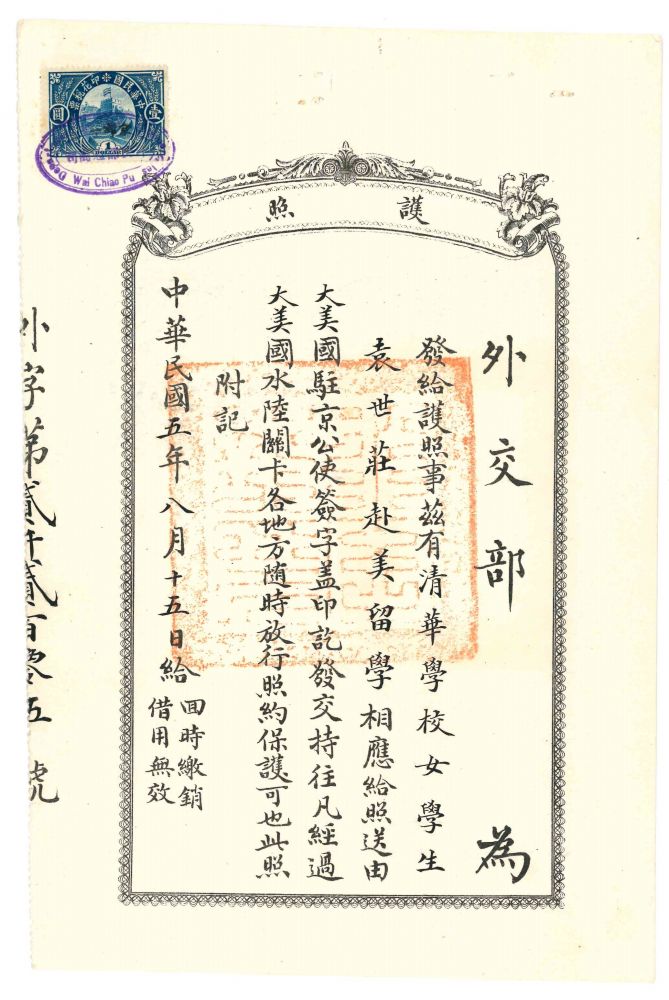 護照
外交部 為
發給護照事茲有清華學校女學生
袁世莊赴美留學相應給照送由
大美國駐京公使簽字盖印訖發交持往凡經過
大美國水陸關卡各地方随時放行照約保護可也此照
附記
中華民國五年八月十五日給
回時繳銷
借用無效
外字第貳仟貳百零五號
中華民國印花稅票
壹圓
1
DOLLAR
Wai Chiao Pu